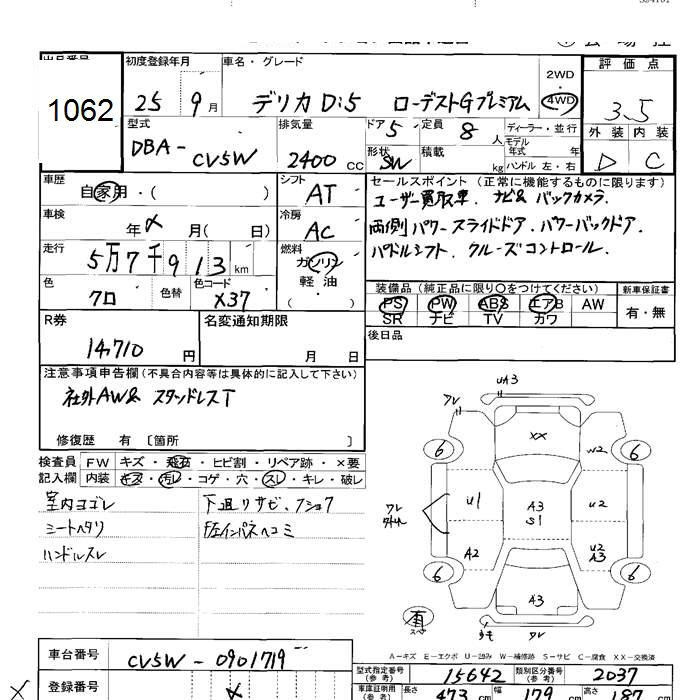 初度登録年月 車名・グレード
25 9月 デリカ D:5 ローデストGプレミアム
2WD
4WD
評価点
3.5
外装 内装
D C
1062
型式 排気量 ドア 5 定員 8人 ディーラー・並行
DBA- CV5W 2400 CC
形状 SW 積載 kg
モデル年式 年
ハンドル 左・右
車歴 自家用・( )
シフト AT
車検 年 月( 日)
冷房 AC
走行 5万7千913 km
燃料 ガソリン 軽油 ( )
色 クロ 色替 色コード X37
セールスポイント(正常に機能するものに限ります)
ユーザー買取車. ナビ& バックカメラ.
両側パワースライドドア. パワーバックドア.
パドルシフト. クルーズコントロール.
装備品(純正品に限り○をつけてください) 新車保証書
PS PW ABS エアB AW 有・無
SR ナビ TV カワ
後日品
R券 名変通知期限
14,710 円 月 日
注意事項申告欄(不具合内容等は具体的に記入して下さい)
社外AW& スタッドレスT
修復歴 有〔箇所 〕
検査員 FW キズ・飛石・ヒビ割・リペア跡・×要
記入欄 内装 キズ・汚レ・コゲ・穴・スレ・キレ・破レ
室内ヨゴレ 下廻りサビ.フショク
シートヘタリ 左インパネヘコミ
ハンドルスレ
UA3
アレ
XX
6 W2 6
U1 A3 S1 U2
A2 U2 A3
6 A3 6
有
スペア
A-キズ E-エクボ U-凹み W-補修跡 S-サビ C-腐食 XX-交換済
車台番号 CV5W-0901719
登録番号
型式指定番号(参考) 15642 類別区分番号(参考) 2037
車庫証明用(参考) 長さ 473 cm 幅 179 cm 高さ 187 cm